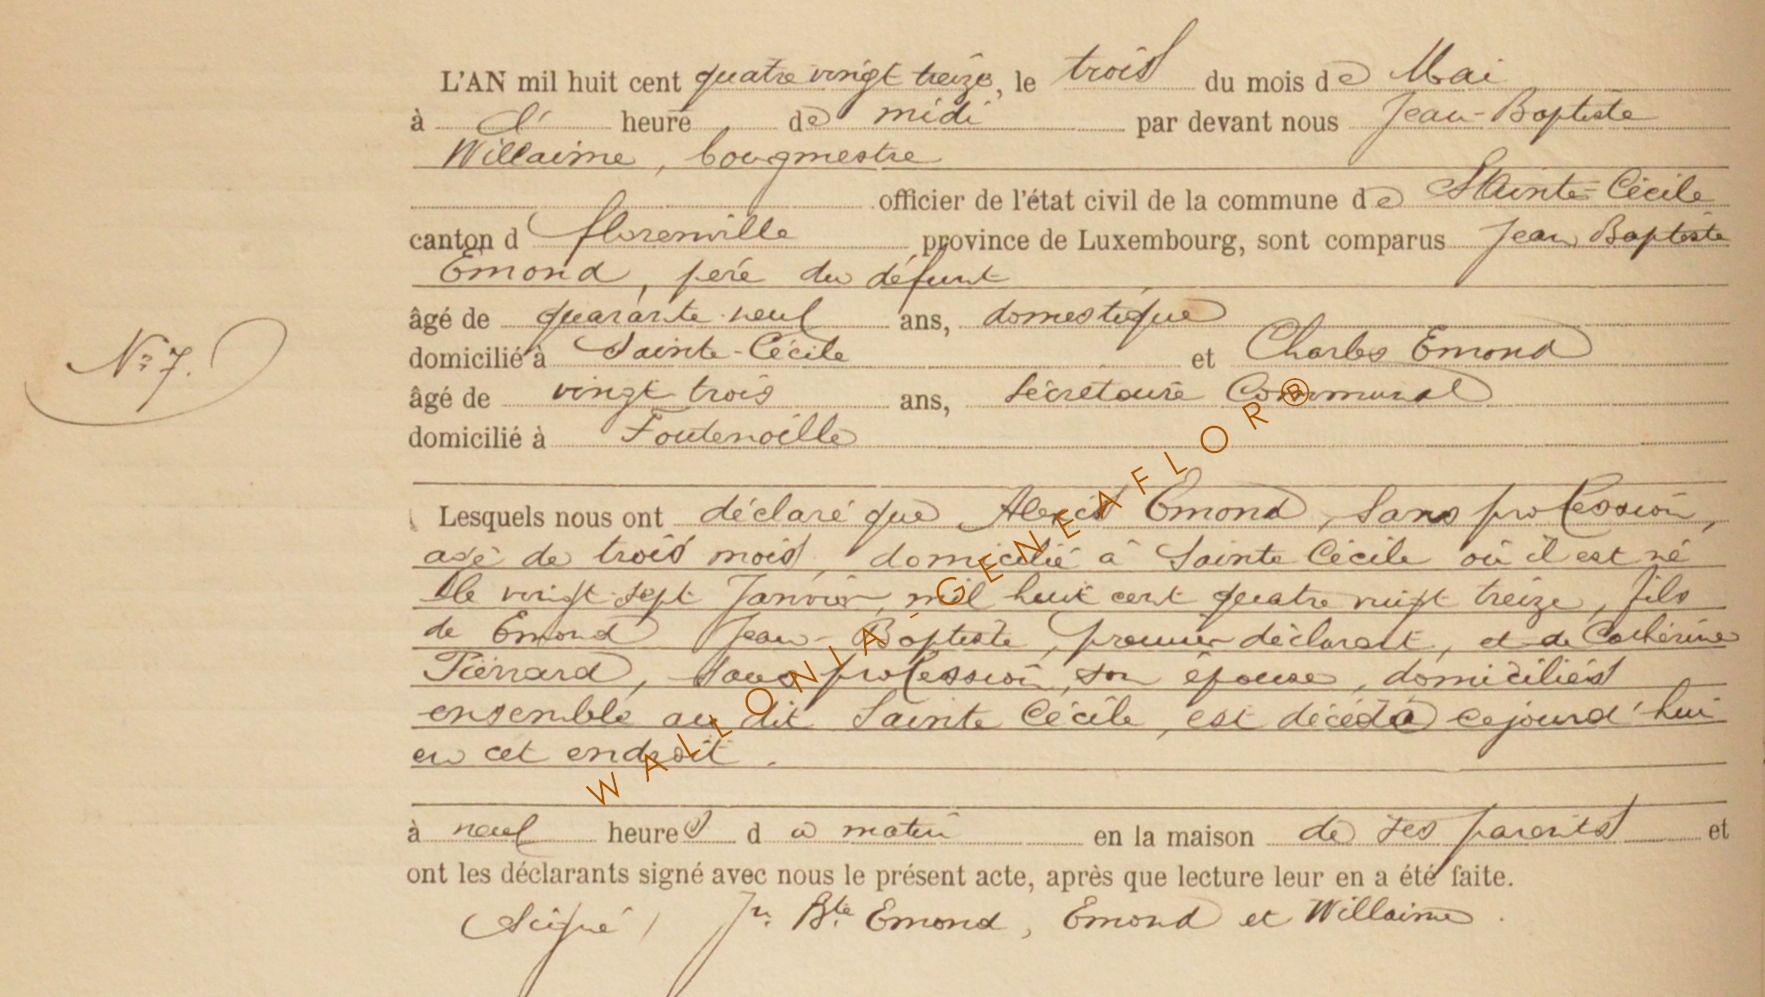 L'AN mil huit cent quatre vingt treize, le trois du mois de Mai
à heure de midi par devant nous Jean-Baptiste
Willaime, bougmestre
officier de l'état civil de la commune de Sainte-Cécile
canton d florenville province de Luxembourg, sont comparus Jean Baptiste
Emond, père du défunt
âgé de quarante neuf ans, domestique
domicilié à Sainte-Cécile et Charles Emond
N° 7.
âgé de vingt trois ans, Secrétaire Communal
domicilié à Fontenoille
Lesquels nous ont déclaré que Alexis Emond, Sans profession,
agé de trois mois, domicilié à Sainte Cécile où il est né
le vingt-sept Janvier, mil huit cent quatre vingt treize, fils
de Emond Jean-Baptiste, premier déclarant, et de Cathérine
Pierrard, sans profession, son épouse, domiciliés
ensemble au dit Sainte Cécile, est décédé cejourd'hui
en cet endroit.
à neuf heures du matin en la maison de ses parents et
ont les déclarants signé avec nous le présent acte, après que lecture leur en a été faite.
(Signé) Jn. Bte Emond, Emond et Willaime.
WALLONIA-GENEAFLOR®